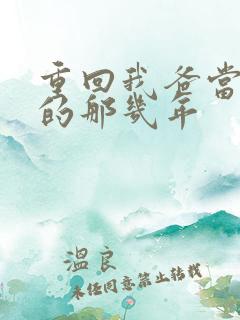 重回我爸当
的那几年
温良
未经同意禁止转载